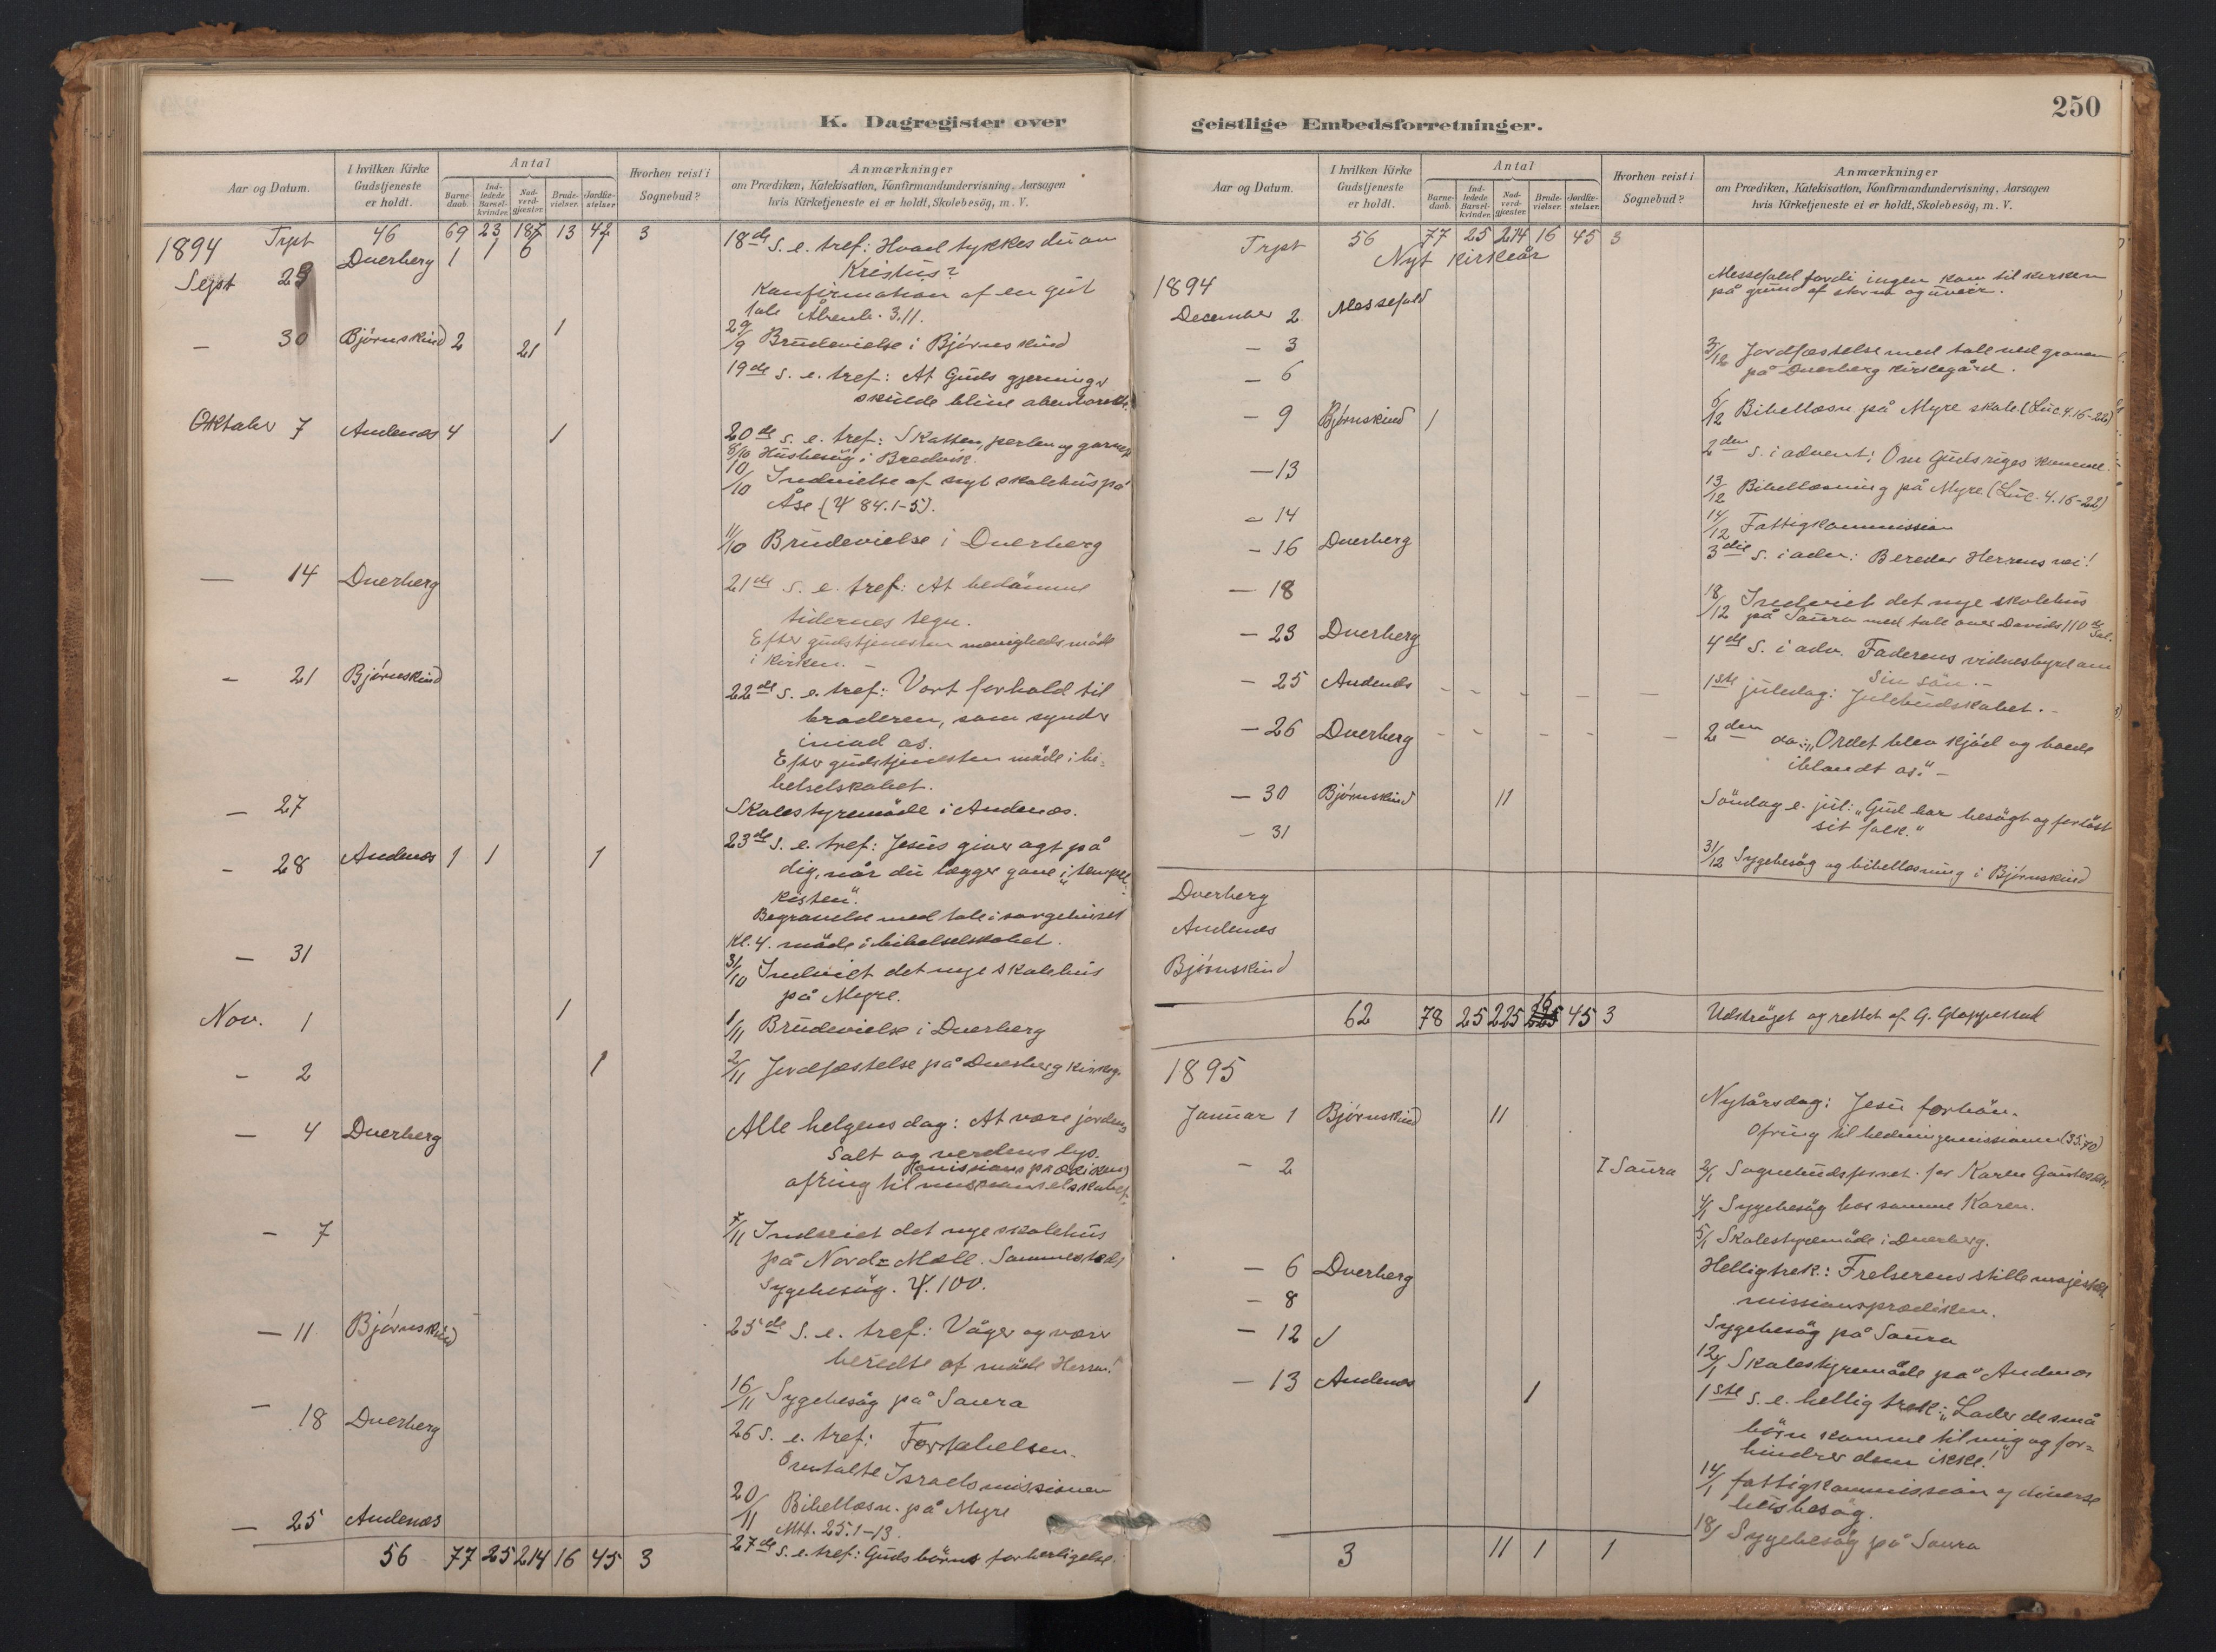 K. Dagregister over
Aar og Datum.
I hvilken Kirke Gudstjeneste er holdt.
Antal
Barne-daab.
Ind-ledede Barsel-kvinder.
Nad-verd-gjæster.
Brude-vielser.
Jordfæ-stelser
Hvorhen reist i Sognebud?
Anmærkninger
om Prædiken, Katekisation, Konfirmandundervisning, Aarsagen
hvis Kirketjeneste ei er holdt, Skolebesög, m. V.
1894 Trpt 46 69 23 187 13 42 3
Sept 23 Dverberg 1 1 6
18de s. e. tref: Hvad tykkes du om
Kristus?
Konfirmation af en gut
tale Åbenb. 3.11.
29/9 Brudevielse i Bjørnskind 1
- 30 Bjørnskind 2 21
19de s. e. tref: At Guds gjerninger
skulde blive åbenbarede.
Oktober 7 Andenæs 4 1
20de s. e. tref: Skatten, perlen og garnet
8/10 Husbesøg i Bredvik.
10/10 Indvielse af nyt skolehus på
Åse (Ψ 84.1-5).
11/10 Brudevielse i Dverberg
— 14 Dverberg
21de s. e. tref: At bedømme
tidernes tegn.
Efter gudstjenesten menighedsmøde
i kirken. —
- 21 Bjørnskind
22de s. e. tref: Vort forhold til
broderen, som synder
imod os.
Efter gudstjenesten møde i bi-
belselskabet.
- 27 Skolestyremøde i Andenæs.
- 28 Andenæs 1 1 1
23de s. e. tref: Jesus giver agt på
dig, når du lægger gave i „tempel-
kisten".
Begravelse med tale i sørgehuset
Kl. 4. møde i bibelselskabet.
- 31
31/10 Indviet det nye skolehus
på Myre.
Nov. 1 1
1/11 Brudevielse i Dverberg
- 2 1
2/11 Jordfæstelse på Dverberg kirkeg.
- 4 Dverberg
Alle helgensdag: At være jordens
Salt og verdens lys.
(Missionsprædiken)
ofring til missionsselskabet.
- 7
7/11 Indviet det nye skolehus
på Nord-Mæle. Sammesteds
sygebesøg. Ψ.100.
- 11 Bjørnskind
25de s. e. tref: Våger og værer
beredte at møde Herren!
16/11 Sygebesøg på Saura
- 18 Dverberg
26 s. e. tref: Fortabelsen.
Omtalte Israelsmissionen
20/11 Bibellæsn. på Myre
Mtt. 25.1-13.
- 25 Andenæs
27de s. e. tref: Guds børns forherligelse.
56 77 25 214 16 45 3
250
geistlige Embedsforretninger.
Aar og Datum.
I hvilken Kirke Gudstjeneste er holdt.
Antal
Barne-daab.
Ind-ledede Barsel-kvinder.
Nad-verd-gjæster.
Brude-vielser.
Jordfæ-stelser.
Hvorhen reist i Sognebud?
Anmærkninger
om Prædiken, Katekisation, Konfirmandundervisning, Aarsagen
hvis Kirketjeneste ei er holdt, Skolebesög, m. V.
Trpt 56 77 25 214 16 45 3
Nyt kirkeår
1894
December 2 Messefald
Messefald fordi ingen kom til kirken
på grund af storm og uveir.
- 3
3/12 Jordfæstelse med tale ved graven
på Dverberg kirkegård.
- 6
6/12 Bibellæsn på Myre skole. (Luc 4.16-22)
- 9 Bjørnskind 1
2den s. i advent: Om Guds riges komme.
- 13
13/12 Bibellæsning på Myre (Luc. 4.16-22)
- 14
14/12 Fattigkommission
- 16 Dverberg
3die s. i adv.: Bereder Herrens vei!
- 18
18/12 Indviet det nye skolehus
på Saura med tale over Davids 110de Sal.
- 23 Dverberg
4de s. i adv. Faderens vidnesbyrd om
Sin søn. -
- 25 Andenæs - - - - -
1ste juledag: Julebudskabet. -
- 26 Dverberg - - - - -
2den do: „Ordet blev kjød og boede
iblandt os." -
- 30 Bjørnskind 11
Søndag e. jul: „Gud har besøgt og forløst
sit folk."
- 31
31/12 Sygebesøg og bibellæsning i Bjørnskind
Dverberg
Andenæs
Bjørnskind
— 62 78 25 225 16 225 45 3 Udstrøget og rettet af G.
1895
Januar 1 Bjørnskind 11
Nytårsdag: Jesu forbøn.
Ofring til hedningemissionen (35.70)
- 2 I Saura
2/1 Sognebudsforret. for Karen
4/1 Sygebesøg hos samme Karen.
5/1 Skolestyremøde i Dverberg.
- 6 Dverberg
Helligtrek.: Frelserens stille majestæt.
missionsprædiken.
- 8
Sygebesøg på Saura
- 12
12/1 Skolestyremøde på Andenæs
- 13 Andenæs 1
1ste s. e. hellig trek: „Lader de små
børn komme til mig og for-
hindrer dem ikke!"
14/1 fattigkommission og diverse
husbesøg.
18/1 Sygebesøg på Saura
3 11 1 1